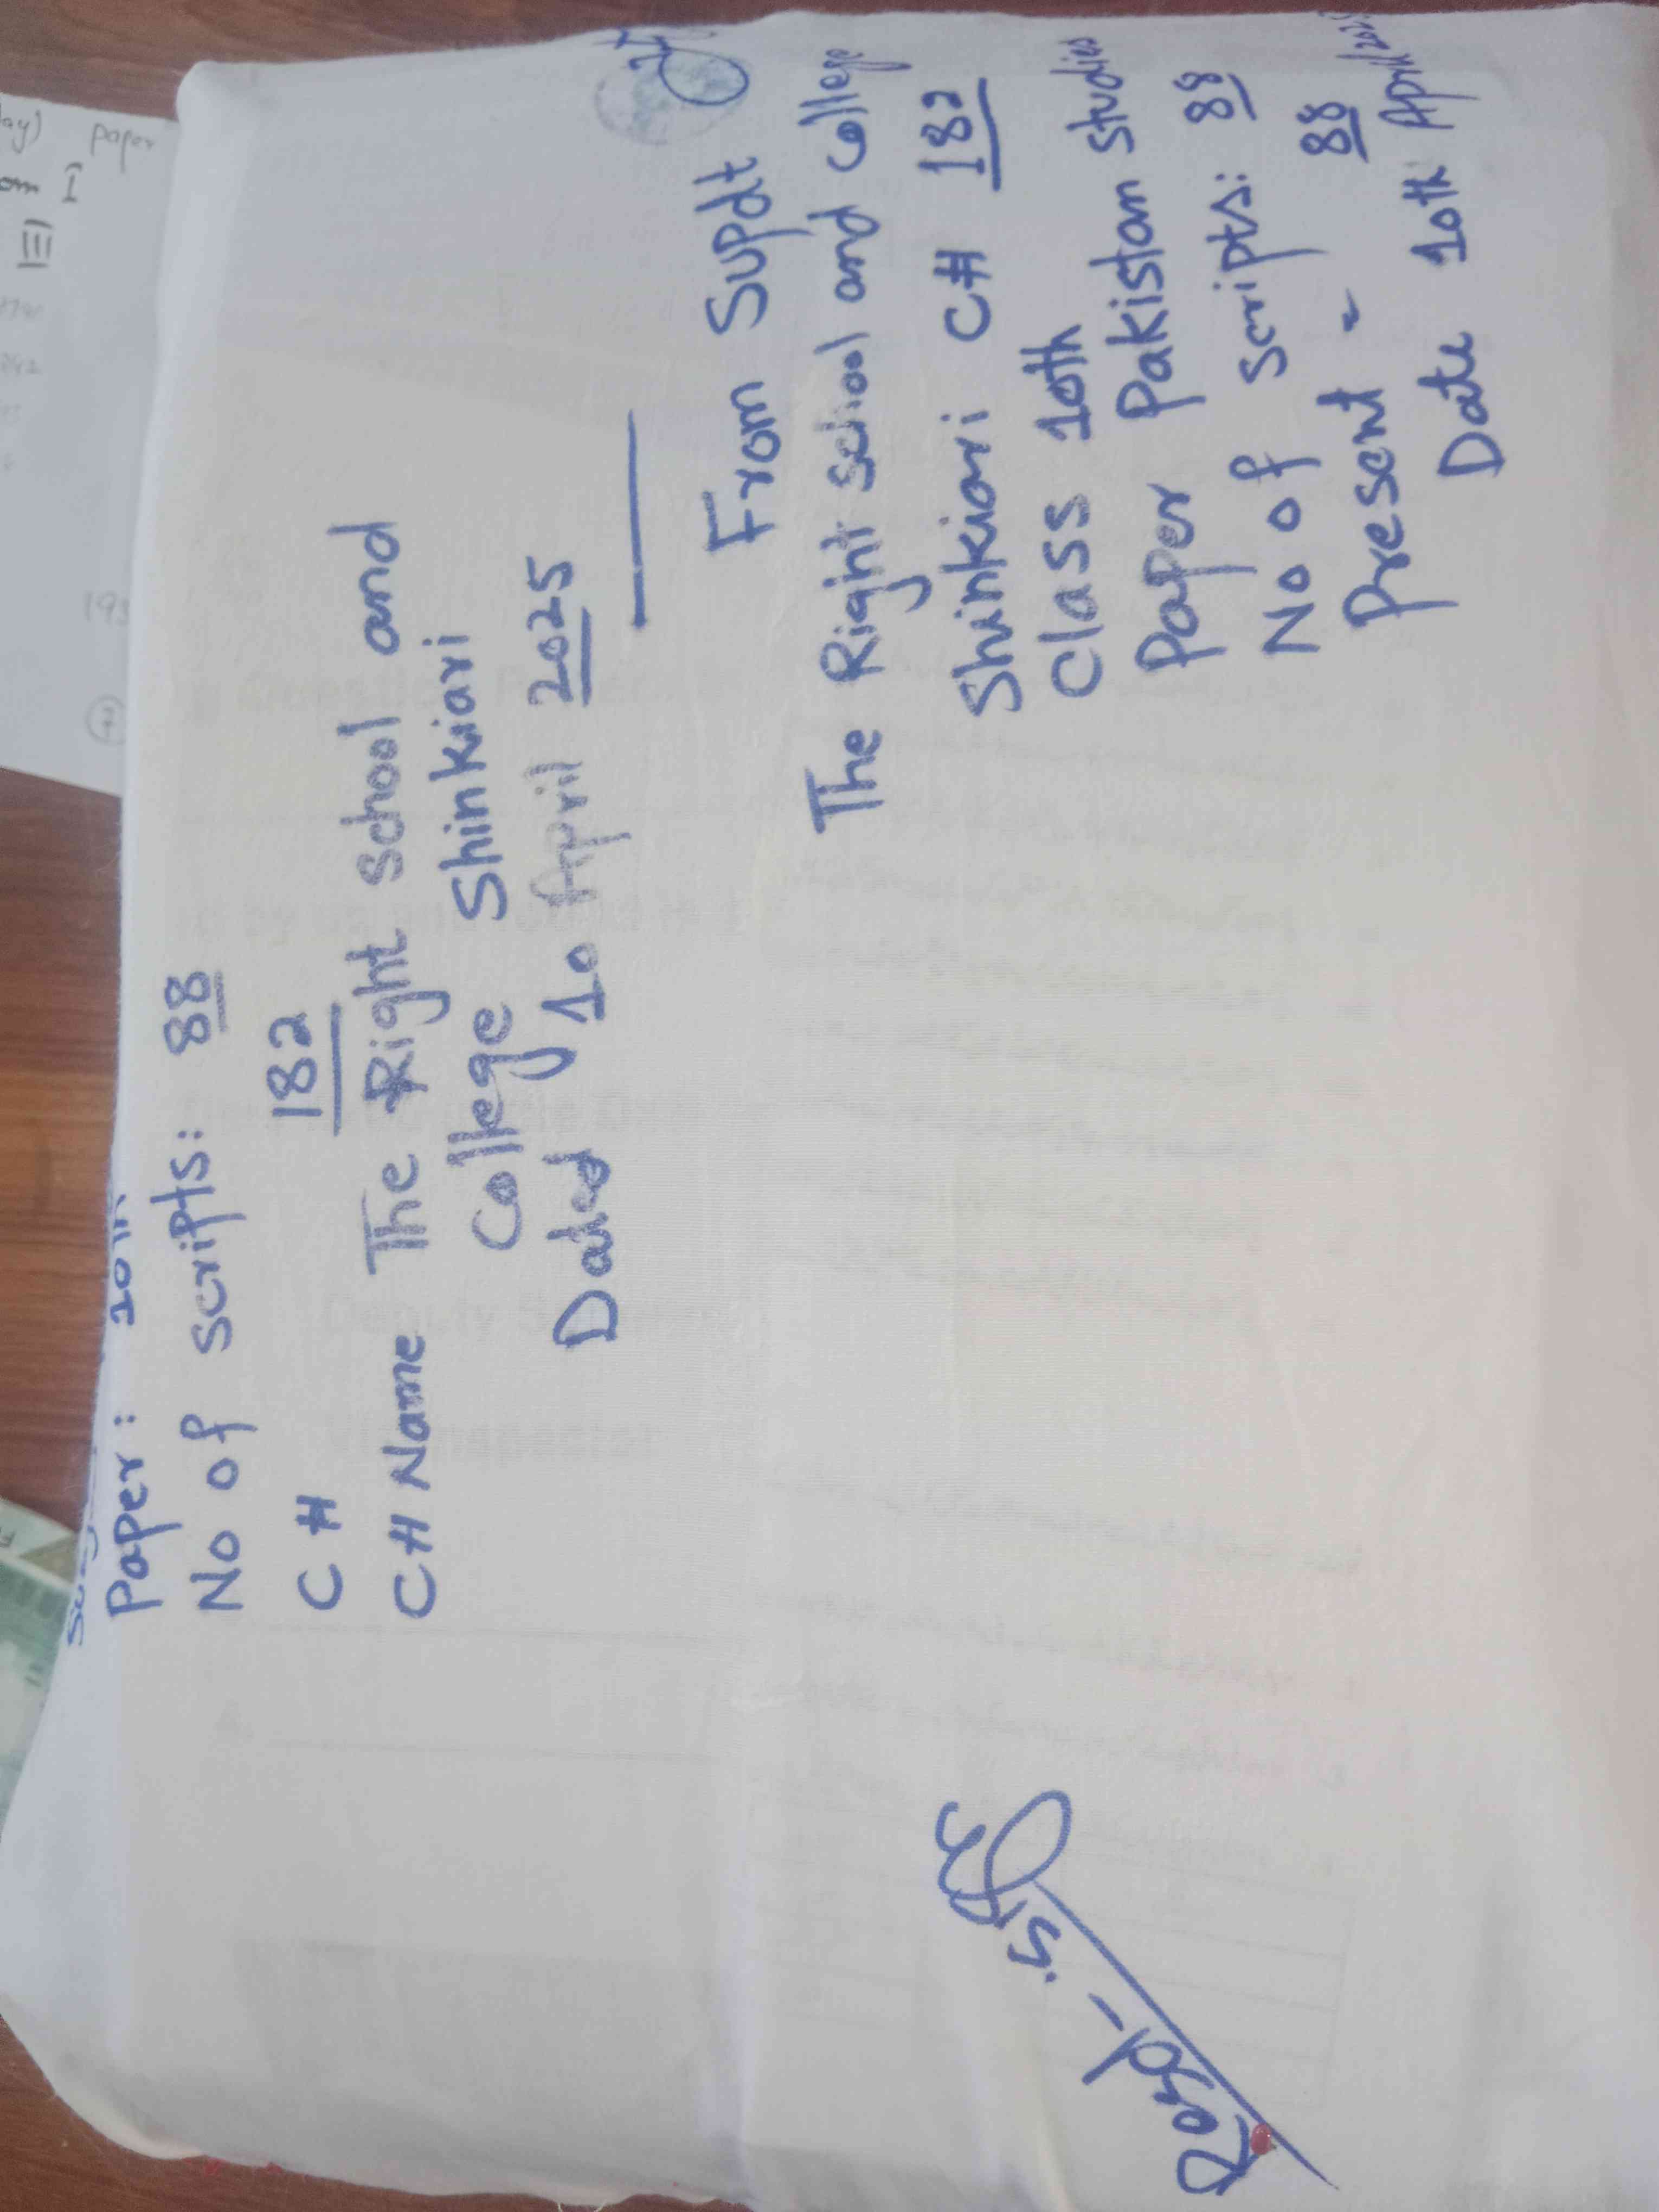 Paper: 10th
No of scripts: 88
C# 182
C# Name The Right School and
College Shinkiari
Dated 10 April 2025
From Supdt
The Right school and college
Shinkiari C# 182
Class 10th
Paper Pakistan studies
No of scripts: 88
Present 88
Date 10th April 2025
Recd - S.
ay) paper
om I
III
193
Question
by
Deputy
Inspector